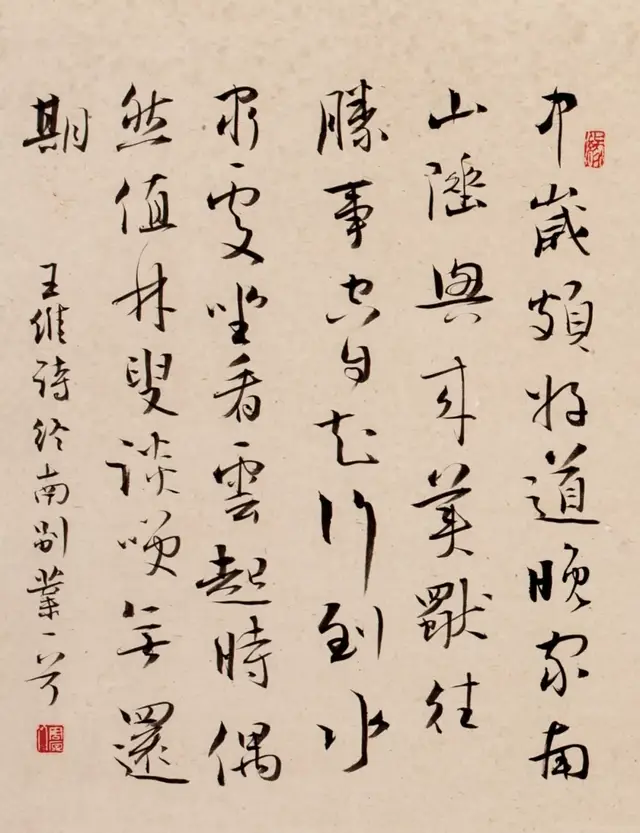 中歲頗好道晚家南
山陲興来每獨往
勝事空自知行到水
窮處坐看雲起時偶
然值林叟談咲無還
期
王維詩終南别業